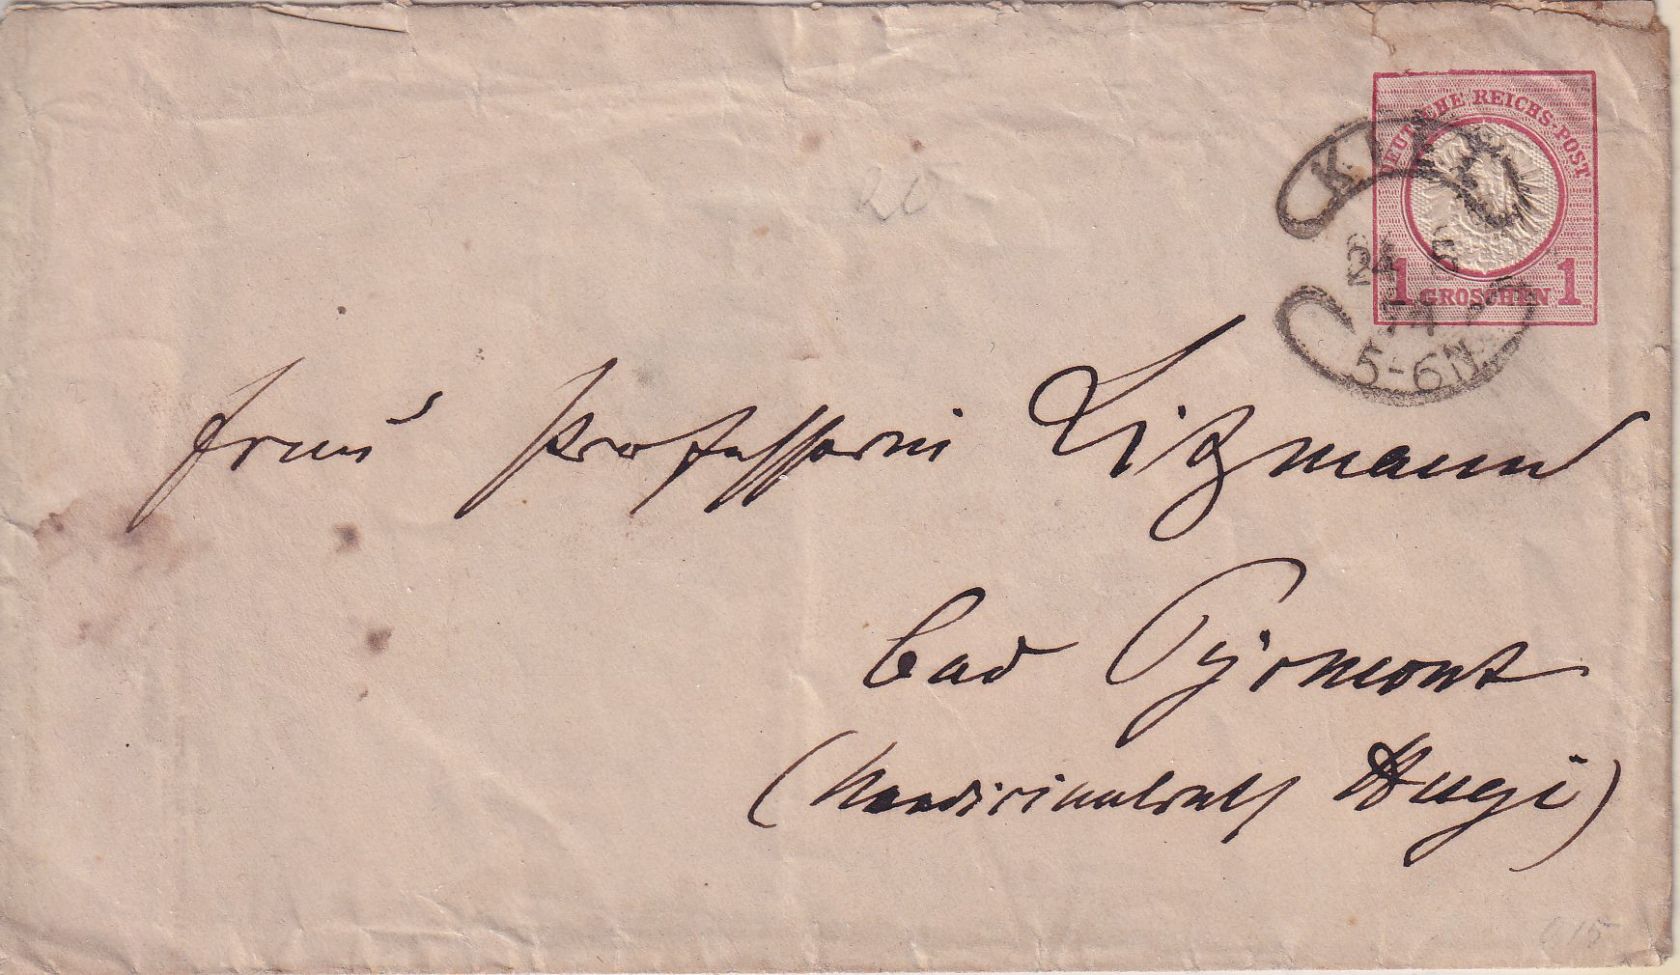 DEUTSCHE REICHS-POST
1 GROSCHEN 1
24 5
74
5-6N
20
Frau Professorin Litzmann
Bad Pyrmont
(Medicinalrath Hugi)